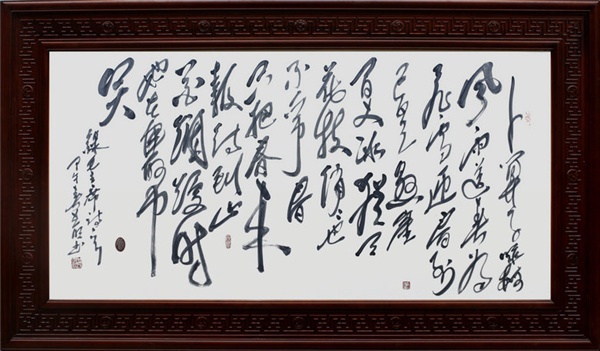 卜算子 咏梅
风雨送春归
飞雪迎春到
已是悬崖
百丈冰犹有
花枝俏俏也
不争春
只把春来
报待到山
花烂漫时
她在丛中
笑
录毛主席诗一首
甲午春书